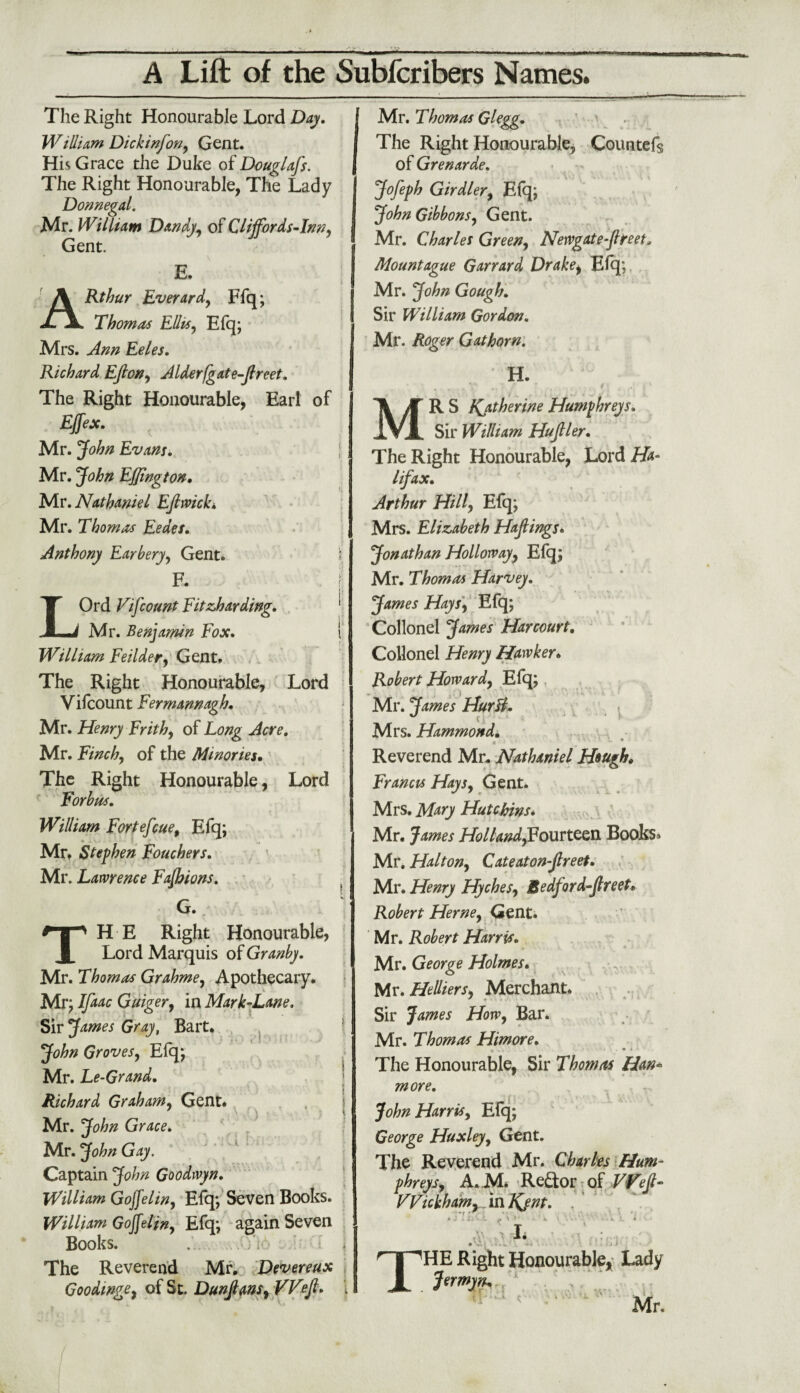 A Lift of the Subfcribers Names.
The Right Honourable Lord Day.
William Dickinſon, Gent.
His Grace the Duke of Douglaſs.
The Right Honourable, The Lady
Donnegal.
Mr. William Dandy, of Cliffords-Inn,
Gent.
E.
ARthur Everard, Fſq;
Thomas Ellis, Eſq;
Mrs. Ann Eeles.
Richard Eſton, Alderſgate-ſtreet.
The Right Honourable, Earl of
Eſſex.
Mr. John Evans.
Mr. John Eſſington.
Mr. Nathaniel Eſtwick.
Mr. Thomas Eedes.
Anthony Earbery, Gent.
F.
LOrd Viſcount Fitzharding.
Mr. Benjamin Fox.
William Feilder, Gent.
The Right Honourable, Lord
Viſcount Fermannagh.
Mr. Henry Frith, of Long Acre.
Mr. Finch, of the Minories.
The Right Honourable, Lord
Forbus.
William Forteſcue, Eſq;
Mr. Stephen Fouchers.
Mr. Lawrence Faſhions.
G.
THE Right Honourable,
Lord Marquis of Granby.
Mr. Thomas Grahme, Apothecary.
Mr; Iſaac Guiger, in Mark-Lane.
Sir James Gray, Bart.
John Groves, Eſq;
Mr. Le-Grand.
Richard Graham, Gent.
Mr. John Grace.
Mr. John Gay.
Captain John Goodwyn.
William Goſſelin, Eſq; Seven Books.
William Goſſelin, Eſq; again Seven
Books.
The Reverend Mr. Devereux
Goodinge, of St. Dunſtans, VVeſt.
Mr. Thomas Glegg.
The Right Honourable, Counteſs
of Grenarde.
Joſeph Girdler, Eſq;
John Gibbons, Gent.
Mr. Charles Green, Newgate-ſtreet.
Mountague Garrard Drake, Eſq;
Mr. John Gough.
Sir William Gordon.
Mr. Roger Gathorn.
H.
MRS Katherine Humphreys.
Sir William Huſtler.
The Right Honourable, Lord Ha-
lifax.
Arthur Hill, Eſq;
Mrs. Elizabeth Haſtings.
Jonathan Holloway, Eſq;
Mr. Thomas Harvey.
James Hays, Eſq;
Collonel James Harcourt.
Collonel Henry Hawker.
Robert Howard, Eſq;
Mr. James Hurſt.
Mrs. Hammond.
Reverend Mr. Nathaniel Hough.
Francis Hays, Gent.
Mrs. Mary Hutchins.
Mr. James Holland, Fourteen Books.
Mr. Halton, Cateaton-ſtreet.
Mr. Henry Hyches, Bedford-ſtreet.
Robert Herne, Gent.
Mr. Robert Harris.
Mr. George Holmes.
Mr. Helliers, Merchant.
Sir James How, Bar.
Mr. Thomas Himore.
The Honourable, Sir Thomas Han-
more.
John Harris, Eſq;
George Huxley, Gent.
The Reverend Mr. Charles Hum-
phreys, A. M. Rector of VVeſt-
VVickham, in Kent.
I.
THE Right Honourable, Lady
Jermyn.
Mr.